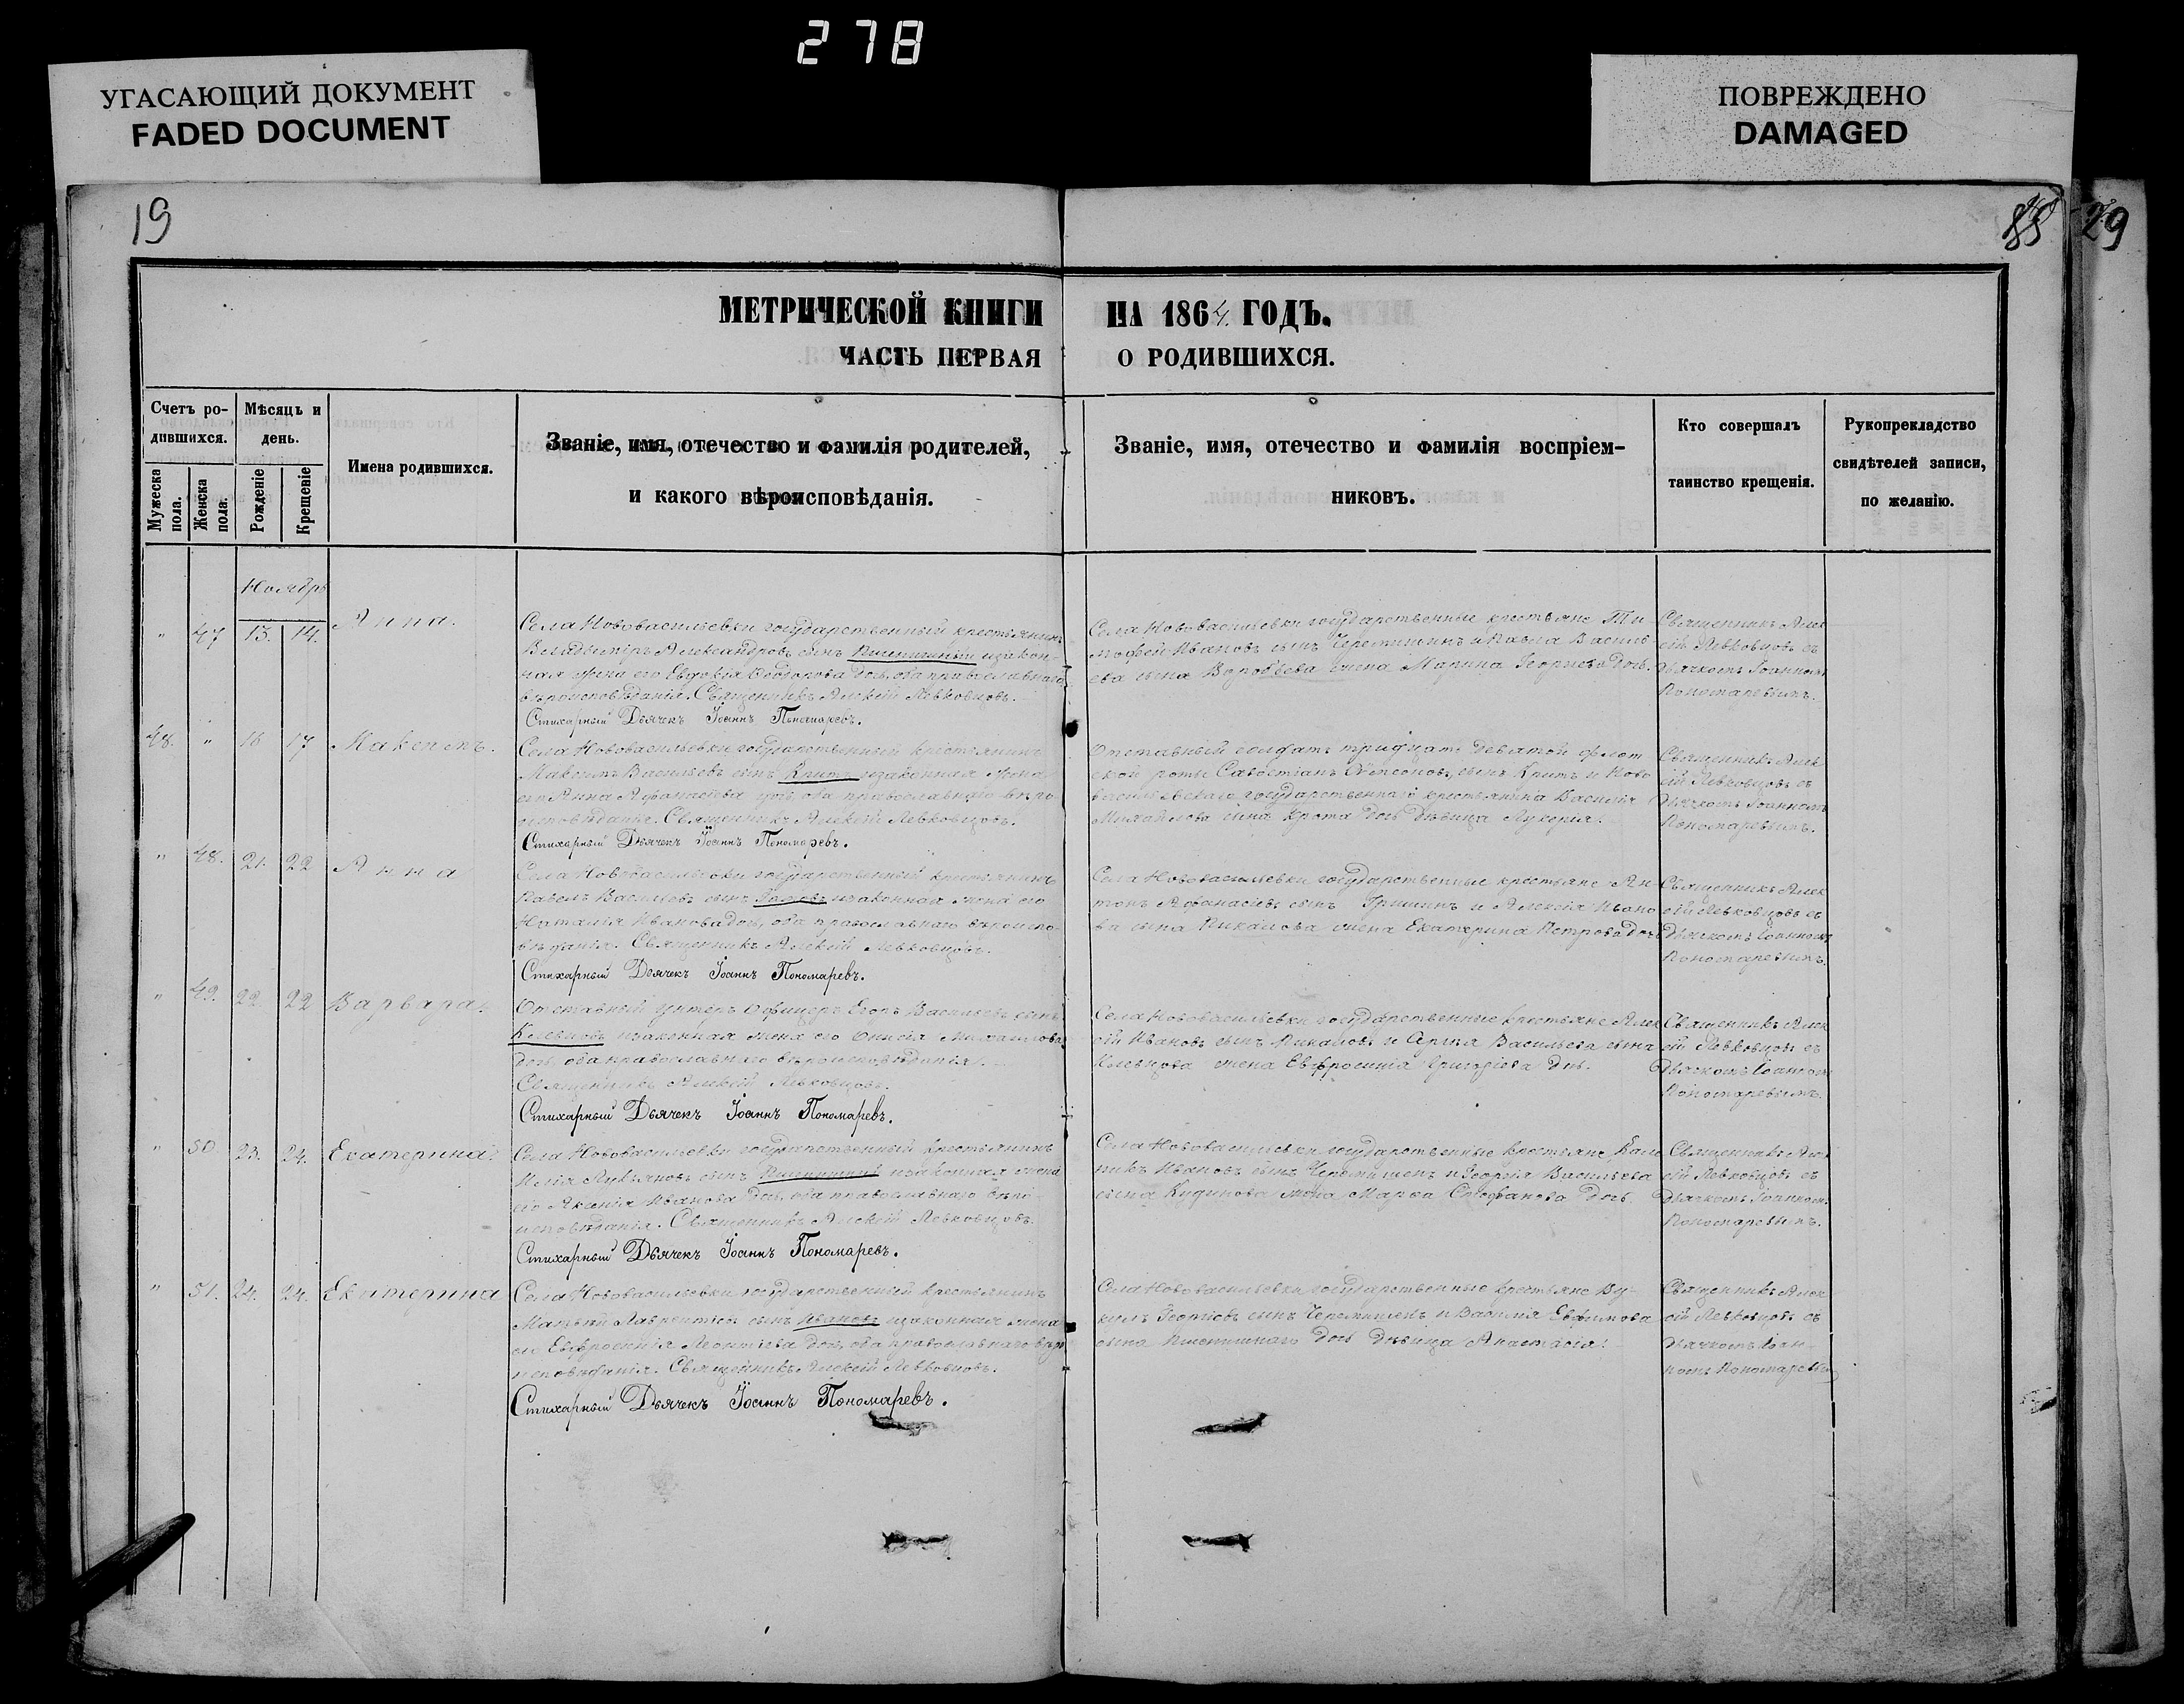 278
УГАСАЮЩИЙ ДОКУМЕНТ
FADED DOCUMENT
ПОВРЕЖДЕНО
DAMAGED
19
29
МЕТРИЧЕСКОЙ КНИГИ НА 1864. ГОДЪ.
ЧАСТЬ ПЕРВАЯ О РОДИВШИХСЯ.
Счетъ ро-
дившихся.
Мужеска пола.
Женска пола.
Мѣсяць и
день.
Рожденіе
Крещеніе
Имена родившихся.
Званіе, имя, отечество и фамилія родителей,
и какого вѣроисповѣданія.
Званіе, имя, отечество и фамилія воспріем-
никовъ.
Кто совершалъ
таинство крещенія.
Рукоприкладство
свидѣтелей записи,
по желанію.
Ноябрь
" 47 13. 14. Анна.
Села Нововасильевки государственный крестьянинъ
Владиміръ Александровъ сынъ Пшеничный и закон-
ная жена его Евдокія Ѳеодорова дочь, оба православнаго
вѣроисповѣданія. Священникъ Алексій Левковцовъ.
Стихарный Дьячекъ Іоаннъ Пономаревъ.
Села Нововасильевки государственные крестьяне Ти-
мофей Ивановъ сынъ и Павла Василь
ева сына Воробьева жена Марина Георгіева дочь.
Священникъ Алек
сій Левковцовъ съ
Дьячкомъ Іоанномъ
Пономаревымъ.
48. " 16 17 Максимъ.
Села Нововасильевки государственный крестьянинъ
Максимъ Васильевъ сынъ и законная жена
его Анна Афанасіева дочь, оба православнаго вѣро
исповѣданія. Священникъ Алексій Левковцовъ.
Стихарный Дьячекъ Іоаннъ Пономаревъ.
Отставный солдатъ тридцать девятой флот
ской роты сынъ и Ново
васильевскаго государственнаго крестьянина Василія
Михайлова сына Крота дочь дѣвица Лукерія.
Священникъ Алек
сій Левковцовъ съ
Дьячкомъ Іоанномъ
Пономаревымъ.
" 48. 21. 22 Анна
Села Нововасильевки государственный крестьянинъ
Павелъ Васильевъ сынъ и законная жена его
Наталія Иванова дочь, оба православнаго вѣроиспо-
вѣданія. Священникъ Алексій Левковцовъ.
Стихарный Дьячекъ Іоаннъ Пономаревъ.
Села Нововасильевки государственные крестьяне Ан-
тонъ Афанасіевъ сынъ Гришинъ и Алексія Ивано
ва сына Никалова жена Екатерина Петрова дочь
Священникъ Алек
сій Левковцовъ съ
Дьячкомъ Іоанномъ
Пономаревымъ.
" 49. 22. 22 Варвара.
Отставный унтеръ Офицеръ Егоръ Васильевъ сынъ
Клевцовъ и законная жена его Онисія Михаилова
дочь, оба православнаго вѣроисповѣданія.
Священникъ Алексій Левковцовъ.
Стихарный Дьячекъ Іоаннъ Пономаревъ.
Села Нововасильевки государственные крестьяне Алек
сій Ивановъ сынъ Никаловъ и Сергія Васильева сына
Клевцова жена Евфросинія Григоріева дочь.
Священникъ Алек
сій Левковцовъ съ
Дьячкомъ Іоанномъ
Пономаревымъ.
" 50 23. 24. Екатерина.
Села Нововасильевки государственный крестьянинъ
Илія Лукьяновъ сынъ и законная жена
его Аксенія Иванова дочь, оба православнаго вѣро-
исповѣданія. Священникъ Алексій Левковцовъ.
Стихарный Дьячекъ Іоаннъ Пономаревъ.
Села Нововасильевки государственные крестьяне Кали
никъ Ивановъ сынъ и Георгія Васильева
сына Кудинова жена Марѳа Стефанова дочь.
Священникъ Алек
сій Левковцовъ съ
Дьячкомъ Іоанномъ
Пономаревымъ.
" 51. 24. 24. Екатерина
Села Нововасильевки государственный крестьянинъ
Матвѣй Лаврентіевъ сынъ Ивановъ и законная жена
его Евфросинія Леонтіева дочь, оба православнаго вѣро
исповѣданія. Священникъ Алексій Левковцовъ.
Стихарный Дьячекъ Іоаннъ Пономаревъ.
Села Нововасильевки государственные крестьяне Ву-
колъ Георгіевъ сынъ и Василія Евфимова
сына Пшеничнаго дочь дѣвица Анастасія.
Священникъ Алек
сій Левковцовъ съ
Дьячкомъ Іоан-
номъ Пономаревым